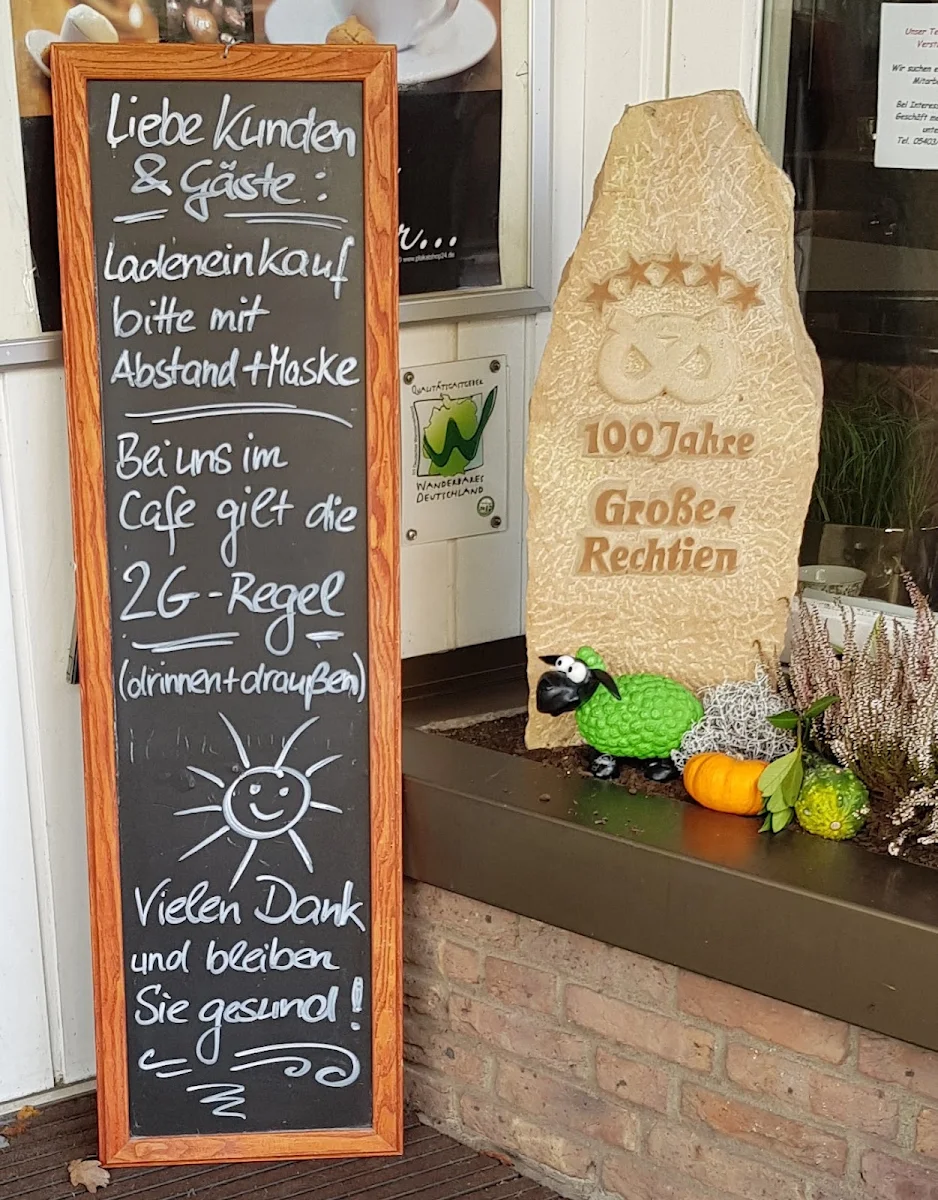 Liebe Kunden
& Gäste:
Ladeneinkauf
bitte mit
Abstand + Maske
Bei uns im
Cafe gilt die
2G-Regel
(drinnen+draußen)
Vielen Dank
und bleiben
Sie gesund!
www.plakatshop24.de
QUALITÄTSGASTGEBER
WANDERBARES
DEUTSCHLAND
100 Jahre
Große-
Rechtien
Unser Te
Verst
Wir suchen e
Mitarb
Bei Interes
Geschäft me
unte
Tel. 05403/